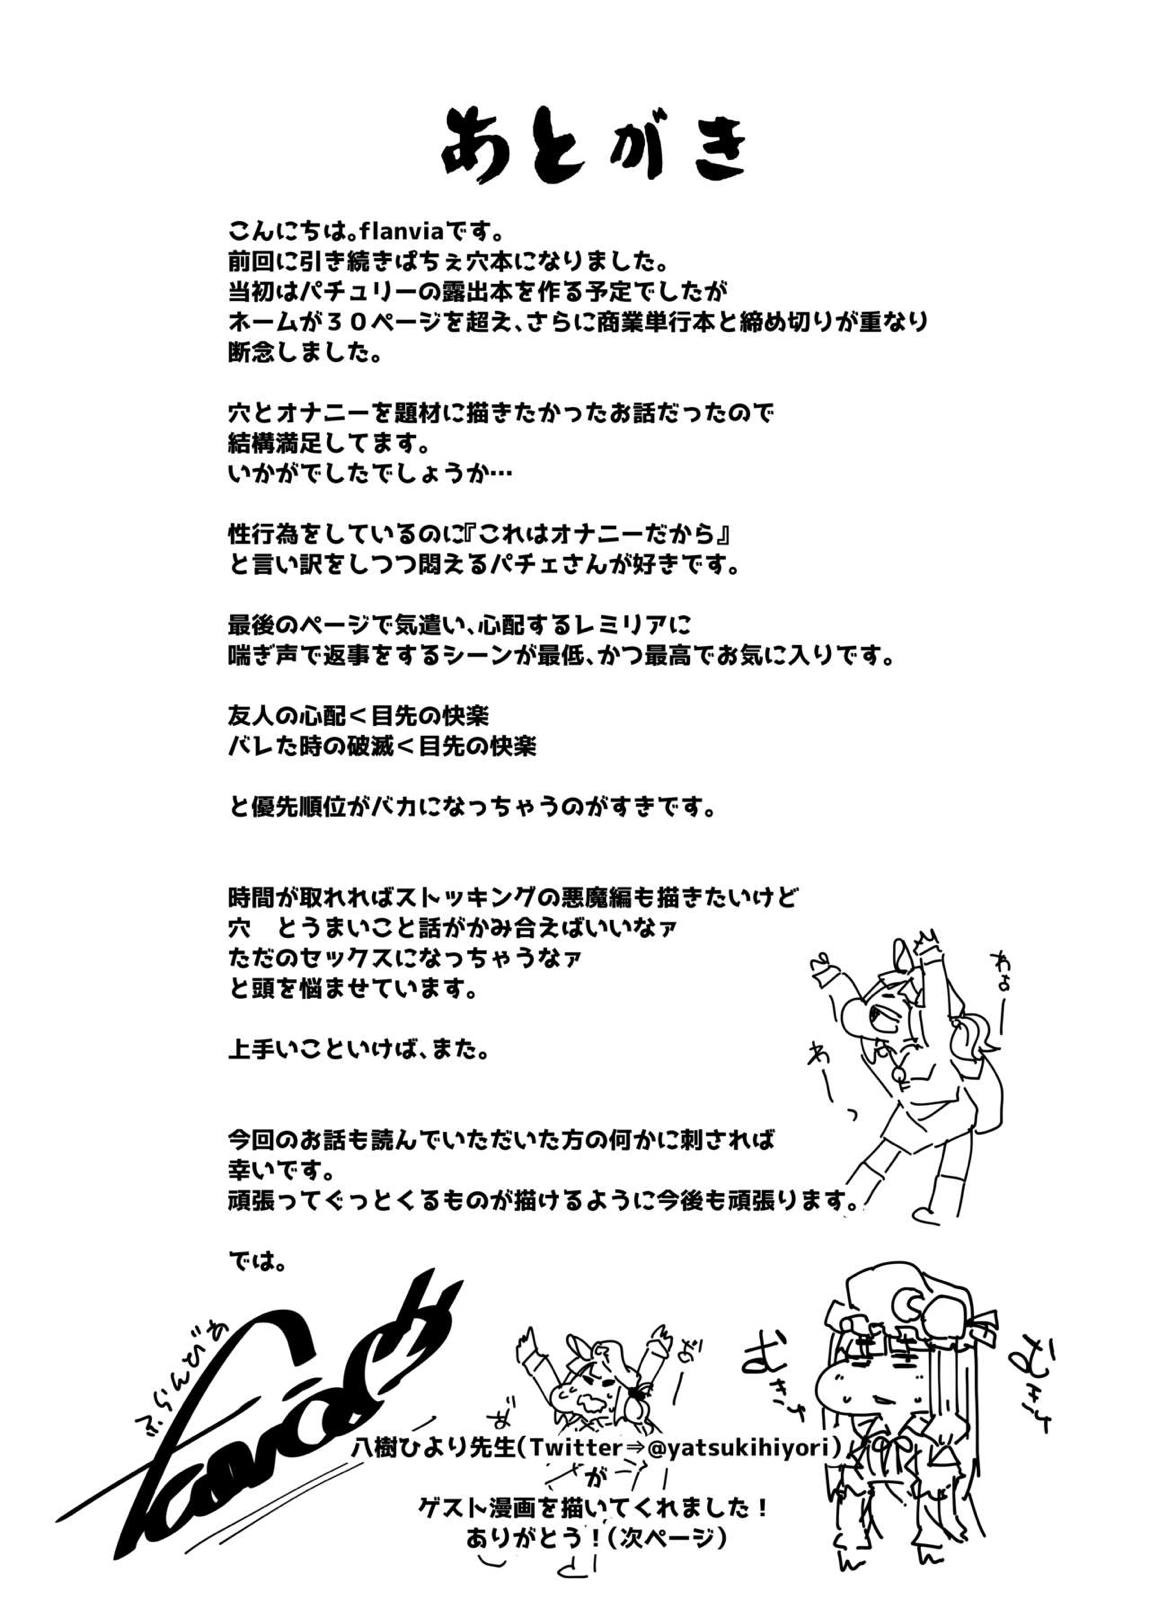 あとがき
こんにちは。flanviaです。
前回に引き続きぱちぇ穴本になりました。
当初はパチュリーの露出本を作る予定でしたが
ネームが３０ページを超え、さらに商業単行本と締め切りが重なり
断念しました。
穴とオナニーを題材に描きたかったお話だったので
結構満足してます。
いかがでしたでしょうか…
性行為をしているのに『これはオナニーだから』
と言い訳をしつつ悶えるパチェさんが好きです。
最後のページで気遣い、心配するレミリアに
喘ぎ声で返事をするシーンが最低、かつ最高でお気に入りです。
友人の心配＜目先の快楽
バレた時の破滅＜目先の快楽
と優先順位がバカになっちゃうのがすきです。
時間が取れればストッキングの悪魔編も描きたいけど
穴　とうまいこと話がかみ合えばいいなァ
ただのセックスになっちゃうなァ
と頭を悩ませています。
上手いこといけば、また。
わょー
わーっ
今回のお話も読んでいただいた方の何かに刺されば
幸いです。
頑張ってぐっとくるものが描けるように今後も頑張ります。
では。
ふらんびあ
むきゅ
むきゅ
八樹ひより先生(Twitter⇒@yatsukihiyori)
が
ゲスト漫画を描いてくれました！
ありがとう！(次ページ)